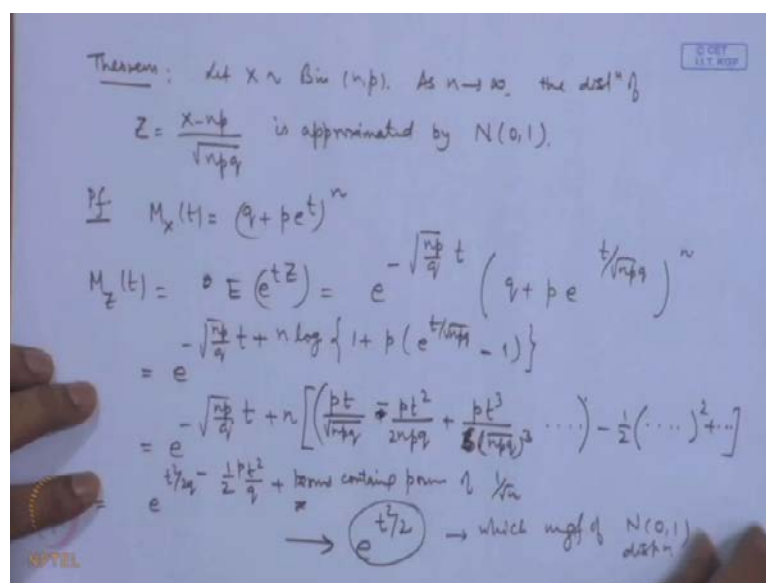 © CET
I.I.T. KGP
Theorem : Let X ~ Bin (n,p). As n→∞, the distⁿ of
Z = (X-np)/√(npq) is approximated by N(0,1).
Pf M_X(t) = (q + pe^t)^n
M_Z(t) = E(e^{tZ}) = e^{-√(np/q) t} (q + p e^{t/√npq})^n
= e^{-√(np/q) t + n log {1 + p(e^{t/√npq} - 1)}}
= e^{-√(np/q) t + n[(pt/√npq + pt²/2npq + pt³/6(√npq)³ ....) - ½(....)² + ...]}
= e^{t²/2q - ½ pt²/q + terms containg power of 1/√n}
→ e^{t²/2} → which mgf of N(0,1)
distn
NPTEL